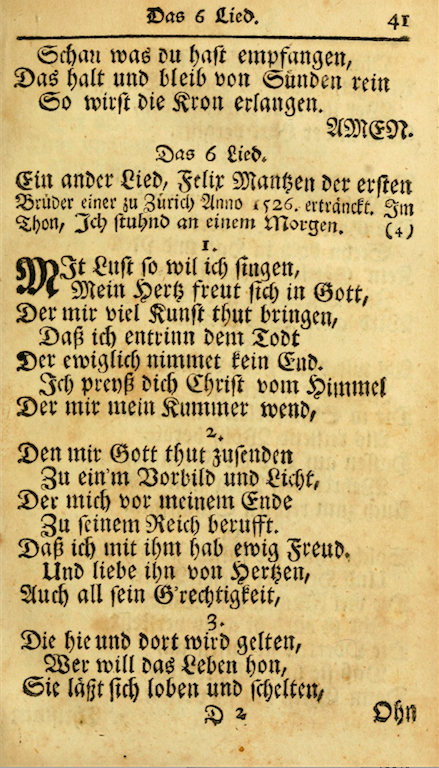 Das 6 Lied. 41
Schau was du hast empfangen,
Das halt und bleib von Sünden rein
So wirst die Kron erlangen.
AMEN.
Das 6 Lied.
Ein ander Lied, Felix Mantzen der ersten
Brüder einer zu Zürich Anno 1526. ertränckt. Im
Thon, Ich stuhnd an einem Morgen. (4)
1.
MIt Lust so wil ich singen,
Mein Hertz freut sich in Gott,
Der mir viel Kunst thut bringen,
Daß ich entrinn dem Todt
Der ewiglich nimmet kein End.
Ich preyß dich Christ vom Himmel
Der mir mein Kummer wend,
2.
Den mir Gott thut zusenden
Zu ein'm Vorbild und Licht,
Der mich vor meinem Ende
Zu seinem Reich berufft.
Daß ich mit ihm hab ewig Freud.
Und liebe ihn von Hertzen,
Auch all sein G'rechtigkeit,
3.
Die hie und dort wird gelten,
Wer will das Leben hon,
Sie läßt sich loben und schelten,
D 2 Ohn